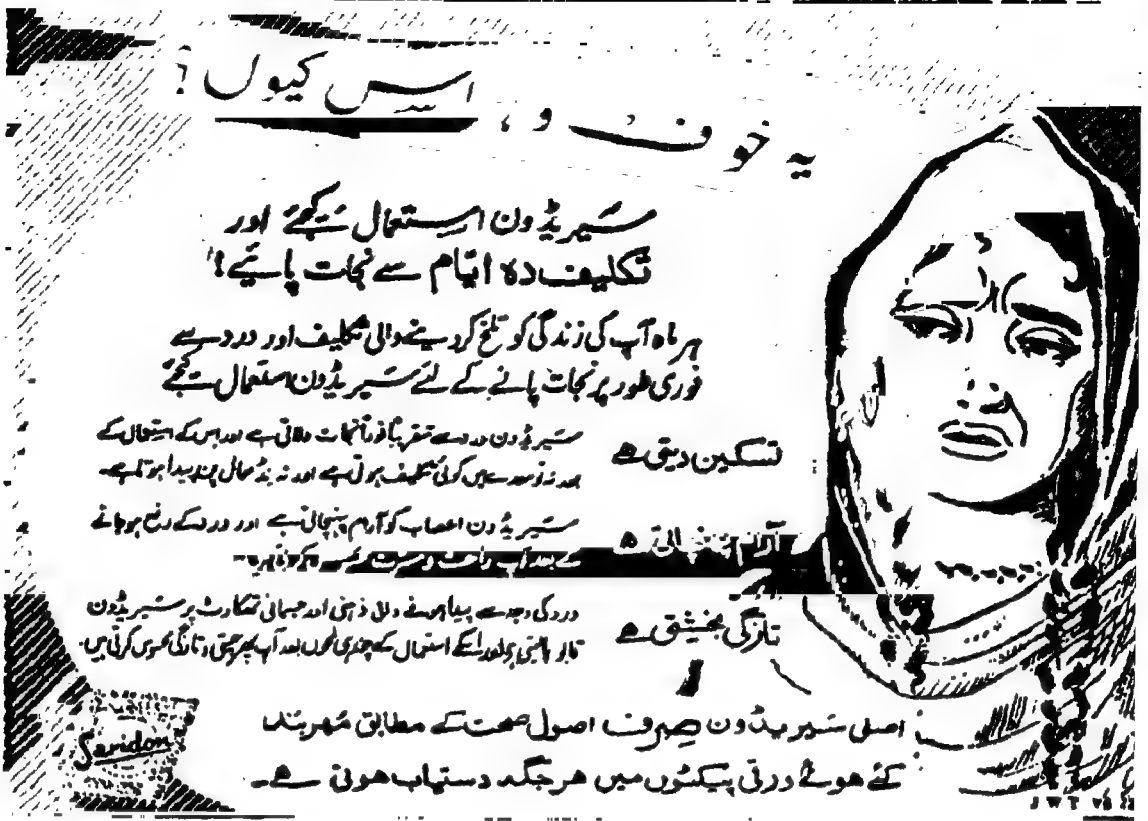 یہ خوف و یاس کیوں ؟
سَیریڈون استعمال کیجئے اور
تکلیف دہ ایّام سے نجات پائیے!
ہر ماہ آپ کی زندگی کو تلخ کر دینے والی تکلیف اور درد سے
فوری طور پر نجات پانے کے لئے سَیریڈون استعمال کیجئے
تسکین دیتی ہے
سَیریڈون درد سے تقریباً فوراً نجات دلاتی ہے اور اس کے استعمال کے
بعد نہ تو معدے میں کوئی تکلیف ہوتی ہے اور نہ نڈھال پن پیدا ہوتا ہے۔
آرام پہنچاتی ہے
سَیریڈون اعصاب کو آرام پہنچاتی ہے اور درد کے رفع ہو جانے
کے بعد آپ راحت و مسرت
تازگی بخشتی ہے
درد کی وجہ سے پیدا ہونے والی ذہنی اور جسمانی تھکاوٹ پر سَیریڈون
قابو پالیتی ہے اور اسکے استعمال کے چند ہی لمحوں بعد آپ پھر چستی و تازگی محسوس کرتی ہیں۔
اصلی سَیریڈون صرف اصول صحت کے مطابق مُہربند
کئے ہوئے ورقی پیکٹوں میں ہر جگہ دستیاب ہوتی ہے۔
Saridon
J W T